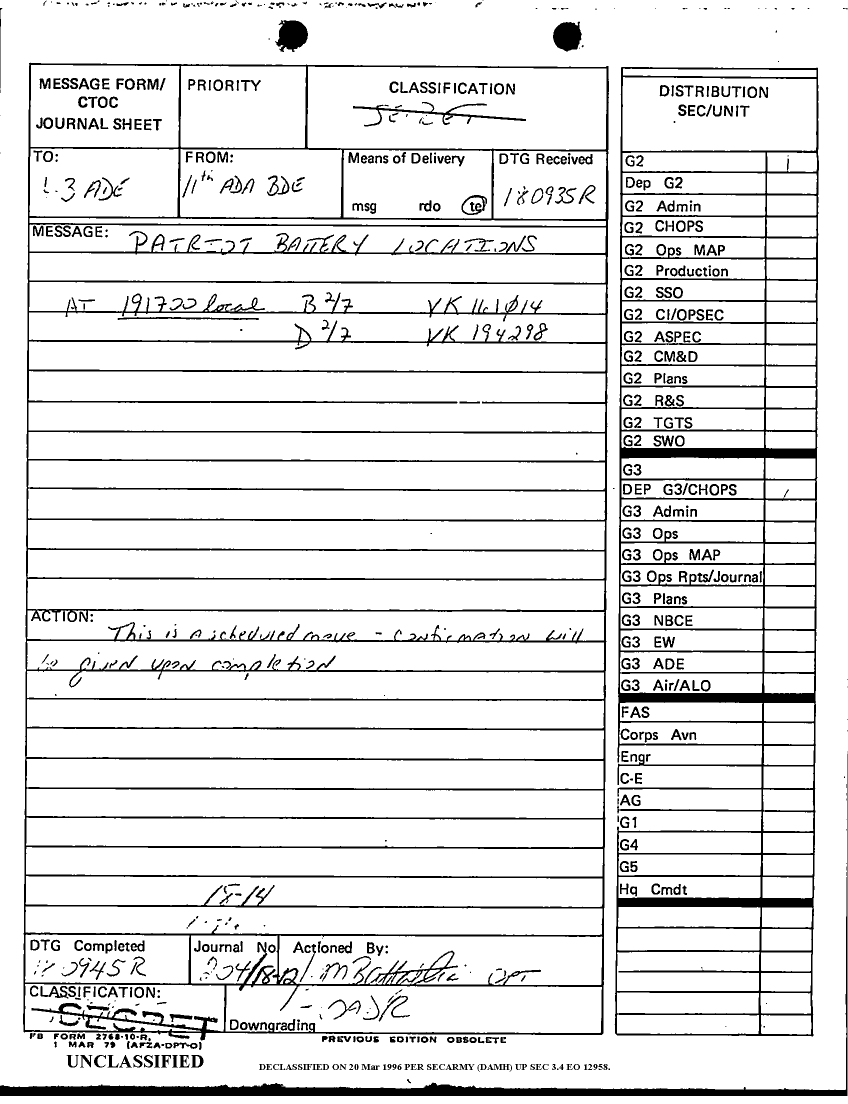 MESSAGE FORM/
CTOC
JOURNAL SHEET
PRIORITY
CLASSIFICATION
SECRET
TO:
G-3 ADE
FROM:
11th ADA BDE
Means of Delivery
msg rdo tel
DTG Received
180935R
MESSAGE:
PATRIOT BATTERY LOCATIONS
AT 191700 local B 2/7 VK
D 2/7 VK 194298
ACTION:
This is a scheduled move - confirmation will
be given upon completion
18-14
DTG Completed
180945R
Journal No
204/18-12
Actioned By:
CPT
CLASSIFICATION:
SECRET
OADR
Downgrading
FB FORM 2768-10-R,
1 MAR 79 (AFZA-DPT-O)
PREVIOUS EDITION OBSOLETE
UNCLASSIFIED
DECLASSIFIED ON 20 Mar 1996 PER SECARMY (DAMH) UP SEC 3.4 EO 12958.
DISTRIBUTION
SEC/UNIT
G2 1
Dep G2
G2 Admin
G2 CHOPS
G2 Ops MAP
G2 Production
G2 SSO
G2 CI/OPSEC
G2 ASPEC
G2 CM&D
G2 Plans
G2 R&S
G2 TGTS
G2 SWO
G3
DEP G3/CHOPS /
G3 Admin
G3 Ops
G3 Ops MAP
G3 Ops Rpts/Journal
G3 Plans
G3 NBCE
G3 EW
G3 ADE
G3 Air/ALO
FAS
Corps Avn
Engr
C-E
AG
G1
G4
G5
Hq Cmdt